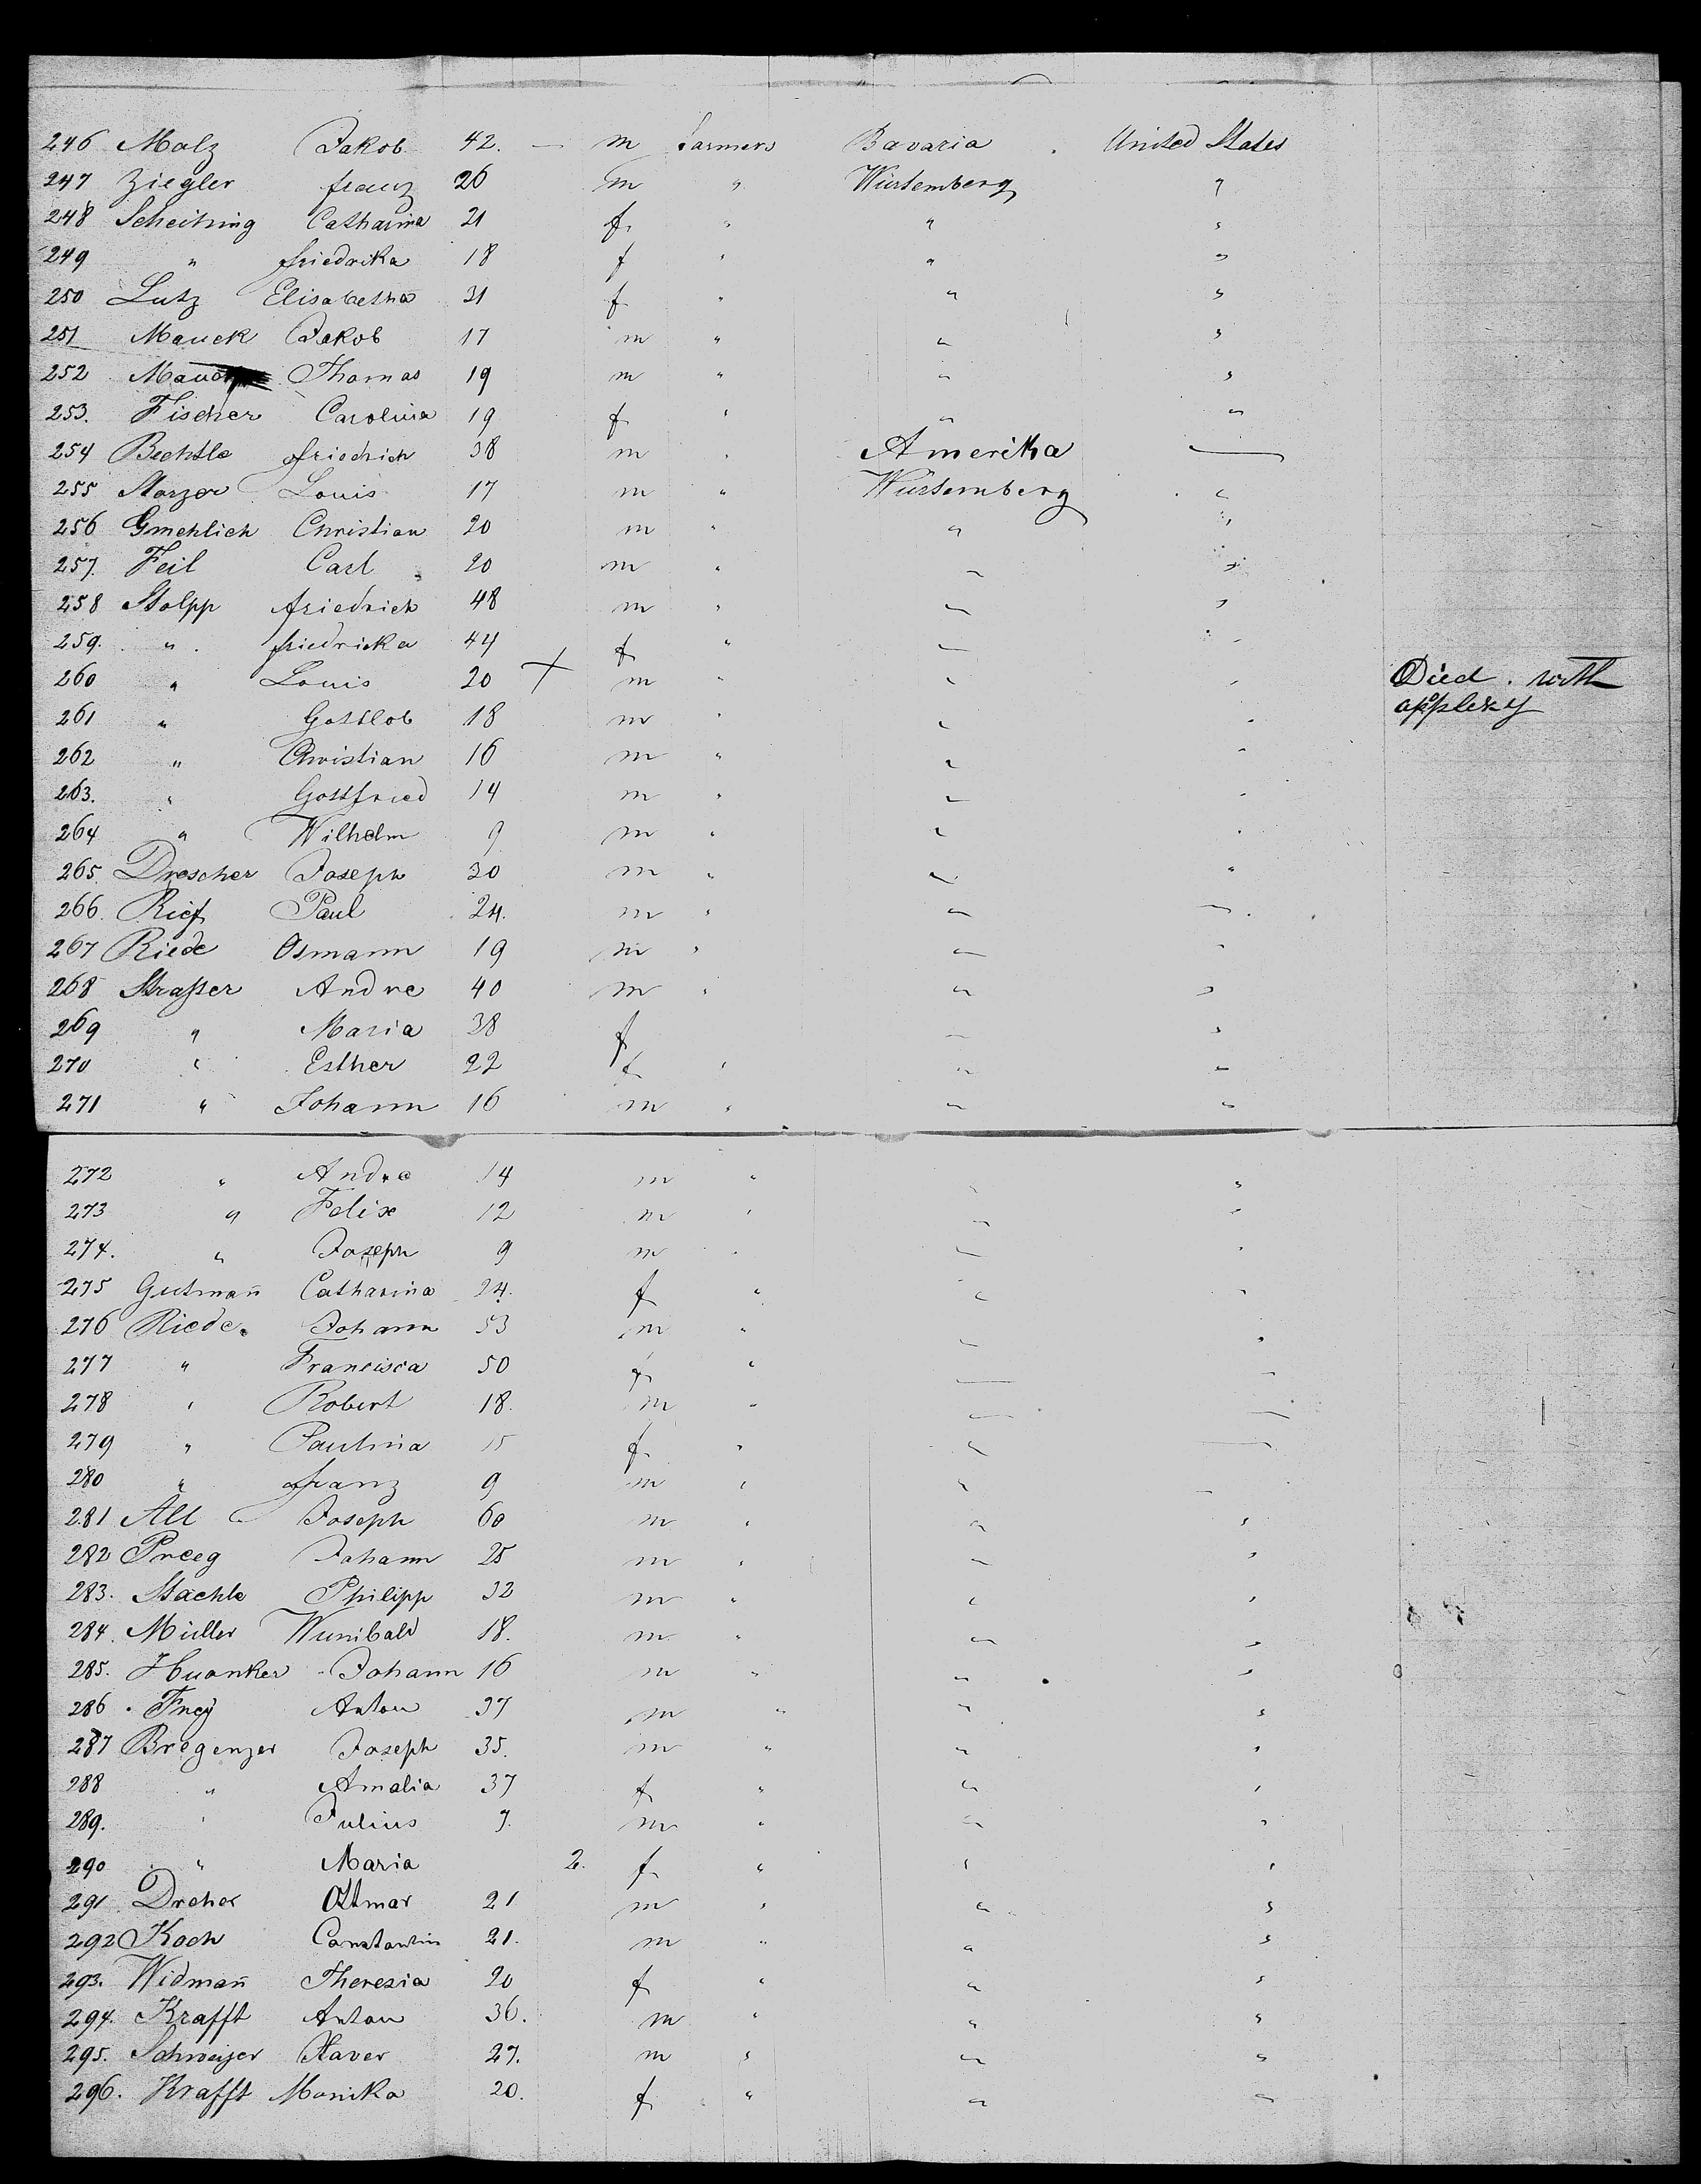 246 Malz Jakob 42. — m Farmers Bavaria . United States
247 Ziegler Franz 26 m " Würtemberg "
248 Scheitring Catharina 21 f. " " "
249 " Friedrika 18 f " " "
250 Lutz Elisabetha 31 f " " "
251 Mauck Jakob 17 m " " "
252 Mauch Thomas 19 m " " "
253. Fischer Carolina 19 f " " "
254 Bechtle Friedrich 38 m " Amerika —
255 Storzer Louis 17 m " Würtemberg "
256 Gmehlich Christian 20 m " " "
257. Feil Carl 20 m " " "
258 Stolpp Friedrich 48 m " " "
259. " Friedricka 44 f " " "
260 " Louis 20 + m " " " Died . with
261 " Gottlob 18 m " " " applexy
262 " Christian 16 m " " "
263. " Gottfried 14 m " " "
264 " Wilhelm 9 m " " "
265. Drescher Joseph 30 m " " "
266. Rief Paul 24. m " " "
267 Riede Osmann 19 m " " "
268 Straßer Andre 40 m " " "
269 " Maria 38 f " "
270 " Esther 22 f " " "
271 " Johann 16 m " " "
272 " Andre 14 m " " "
273 " Felix 12 m " " "
274. " Joseph 9 m " " "
275 Gutman̄ Catharina 24. f " " "
276 Riede. Johann 53 m " " "
277 " Francisca 50 f " " "
278 " Robert 18. m " " "
279 " Paulina 15 f " " "
280 " Franz 9 m " " "
281 All Joseph 60 m " " "
282 Preeg Johann 25 m " " "
283. Staehle Philipp 32 m " " "
284. Müller Wunibald 18. m " " "
285. Huonker Johann 16 m " " "
286 . Frey Anton 37 m " " "
287 Bregenzer Joseph 35. m " " "
288 " Amalia 37 f " " "
289. " Julius 7. m " " "
290 " Maria 2. f " " "
291. Dreher Ottmar 21 m " " "
292 Koch Constantin 21. m " " "
293. Widman̄ Theresia 20 f " " "
294. Krafft Anton 36. m " " "
295. Schweizer Xaver 27. m " " "
296. Krafft Monika 20. f " " "